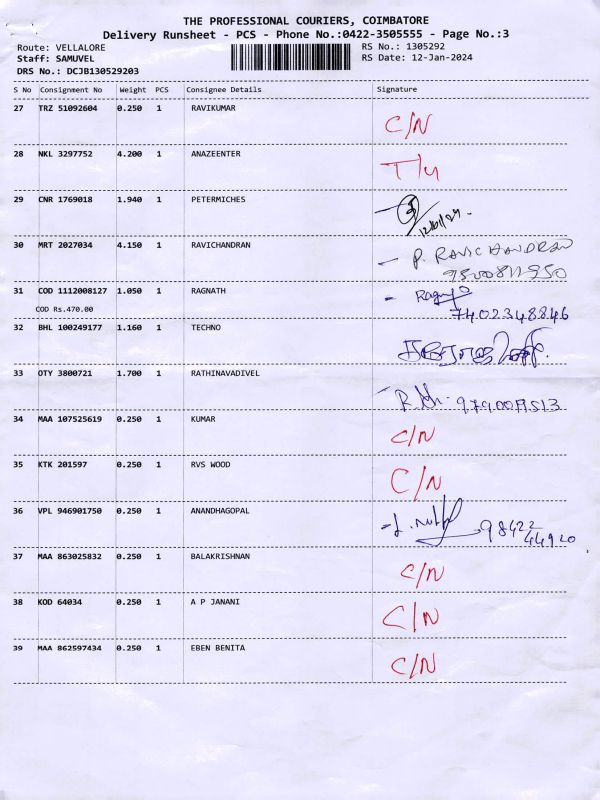 THE PROFESSIONAL COURIERS, COIMBATORE
Delivery Runsheet - PCS - Phone No.:0422-3505555 - Page No.:3
Route: VELLALORE RS No.: 1305292
Staff: SAMUVEL RS Date: 12-Jan-2024
DRS No.: DCJB130529203
S No Consignment No Weight PCS Consignee Details Signature
27 TRZ 51092604 0.250 1 RAVIKUMAR C/N
28 NKL 3297752 4.200 1 ANAZEENTER
29 CNR 1769018 1.940 1 PETERMICHES
30 MRT 2027034 4.150 1 RAVICHANDRAN P. RAVICHANDRAN
31 COD 1112008127 1.050 1 RAGNATH
COD Rs.470.00 7402348846
32 BHL 100249177 1.160 1 TECHNO
33 OTY 3800721 1.700 1 RATHINAVADIVEL
34 MAA 107525619 0.250 1 KUMAR C/N
35 KTK 201597 0.250 1 RVS WOOD C/N
36 VPL 946901750 0.250 1 ANANDHAGOPAL 98422
44920
37 MAA 863025832 0.250 1 BALAKRISHNAN C/N
38 KOD 64034 0.250 1 A P JANANI C/N
39 MAA 862597434 0.250 1 EBEN BENITA C/N